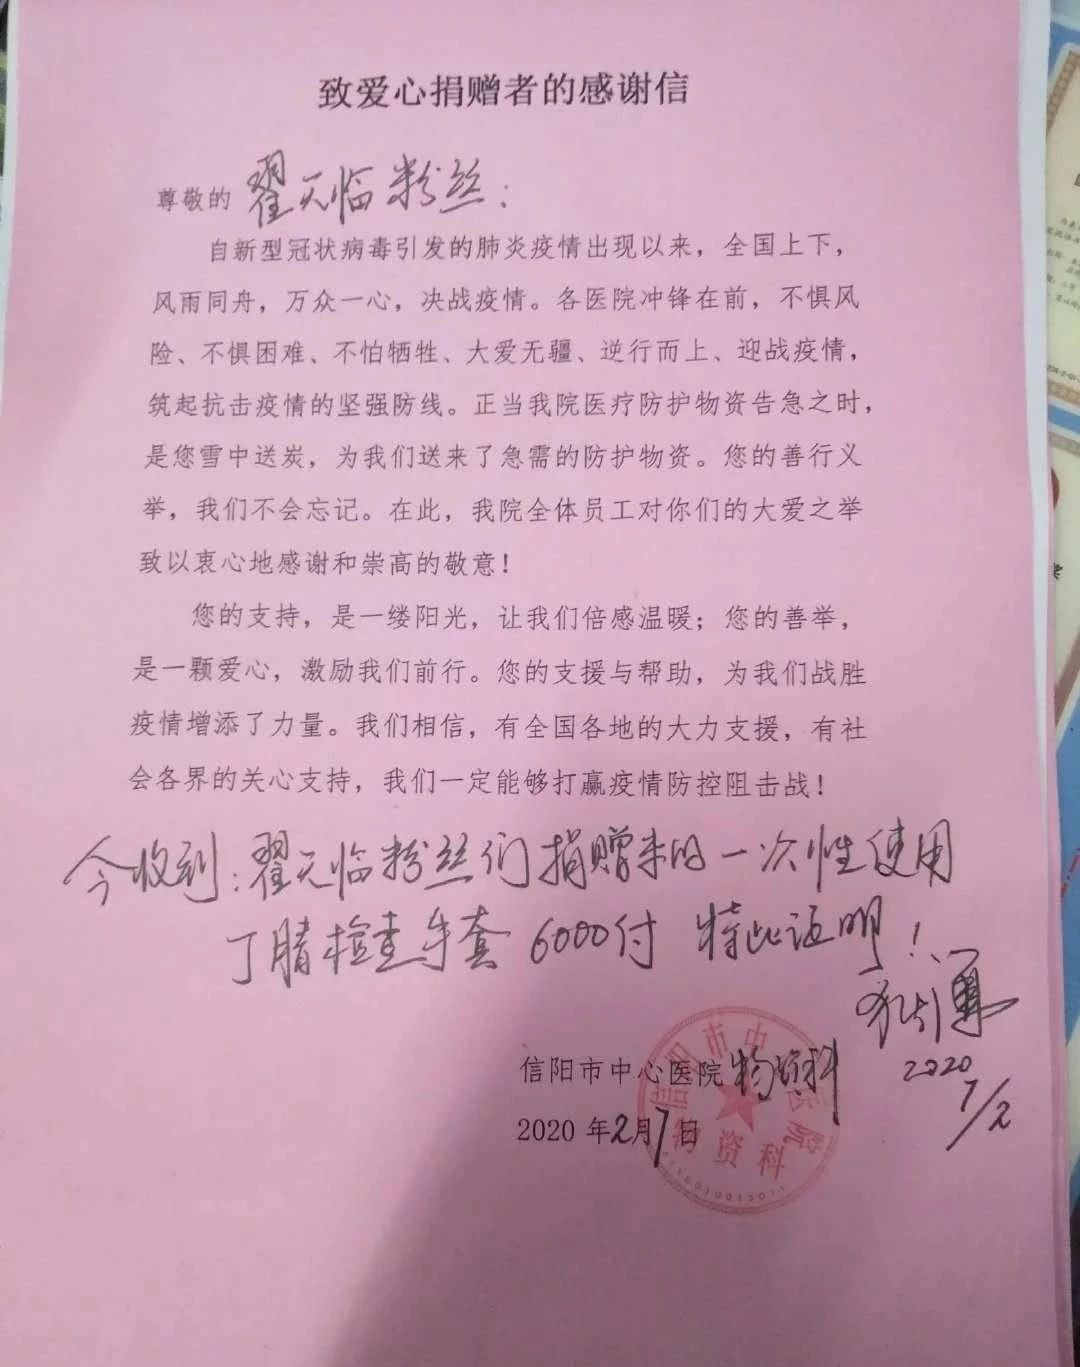 致爱心捐赠者的感谢信
尊敬的 翟天临粉丝：
自新型冠状病毒引发的肺炎疫情出现以来，全国上下，
风雨同舟，万众一心，决战疫情。各医院冲锋在前，不惧风
险、不惧困难、不怕牺牲、大爱无疆、逆行而上、迎战疫情，
筑起抗击疫情的坚强防线。正当我院医疗防护物资告急之时，
是您雪中送炭，为我们送来了急需的防护物资。您的善行义
举，我们不会忘记。在此，我院全体员工对你们的大爱之举
致以衷心地感谢和崇高的敬意！
您的支持，是一缕阳光，让我们倍感温暖；您的善举，
是一颗爱心，激励我们前行。您的支援与帮助，为我们战胜
疫情增添了力量。我们相信，有全国各地的大力支援，有社
会各界的关心支持，我们一定能够打赢疫情防控阻击战！
今收到：翟天临粉丝们捐赠来的一次性使用
丁腈检查手套 6000付 特此证明！
2020
7/2
信阳市中心医院 物资科
2020 年2月7日
信阳市中心医院
物资科